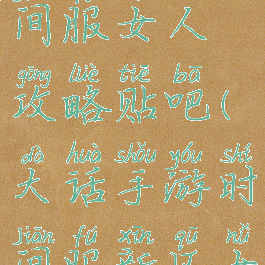 间服女人
gōng lüè tiē bā
攻略贴吧(
dà huà shǒu yóu shí
大话手游时
jiān fú xīn qū nǚ
间服新区女